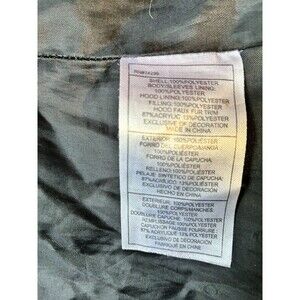 SHELL:100%POLYESTER
BODY/SLEEVES LINING:
100%POLYESTER
HOOD LINING:100%POLYESTER
FILLING:100%POLYESTER
HOOD FAUX FUR TRIM
87%ACRYLIC 13%POLYESTER
EXCLUSIVE OF DECORATION
MADE IN CHINA
EXTERIOR:100%POLIÉSTER
FORRO DEL CUERPO/MANGA:
100%POLIÉSTER
FORRO DE LA CAPUCHA:
100%POLIÉSTER
RELLENO:100%POLIÉSTER
PELAJE SINTETICO DE CAPUCHA:
87%ACRÍLICO 13%POLIÉSTER
EXCLUSIVO DE DECORACIÓN
HECHO EN CHINA
EXTERIEUR:100%POLYESTER
DOUBLURE CORPS/MANCHES:
100%POLYESTER
DOUBLURE CAPUCHE:
100%POLYESTER
REMPLISSAGE:100%POLYESTER
CAPUCHON FAUSSE FOURRURE
87%ACRYLIQUE 13%POLYESTER
EXCLUSIF DE DÉCORATION
FABRIQUÉ EN CHINE